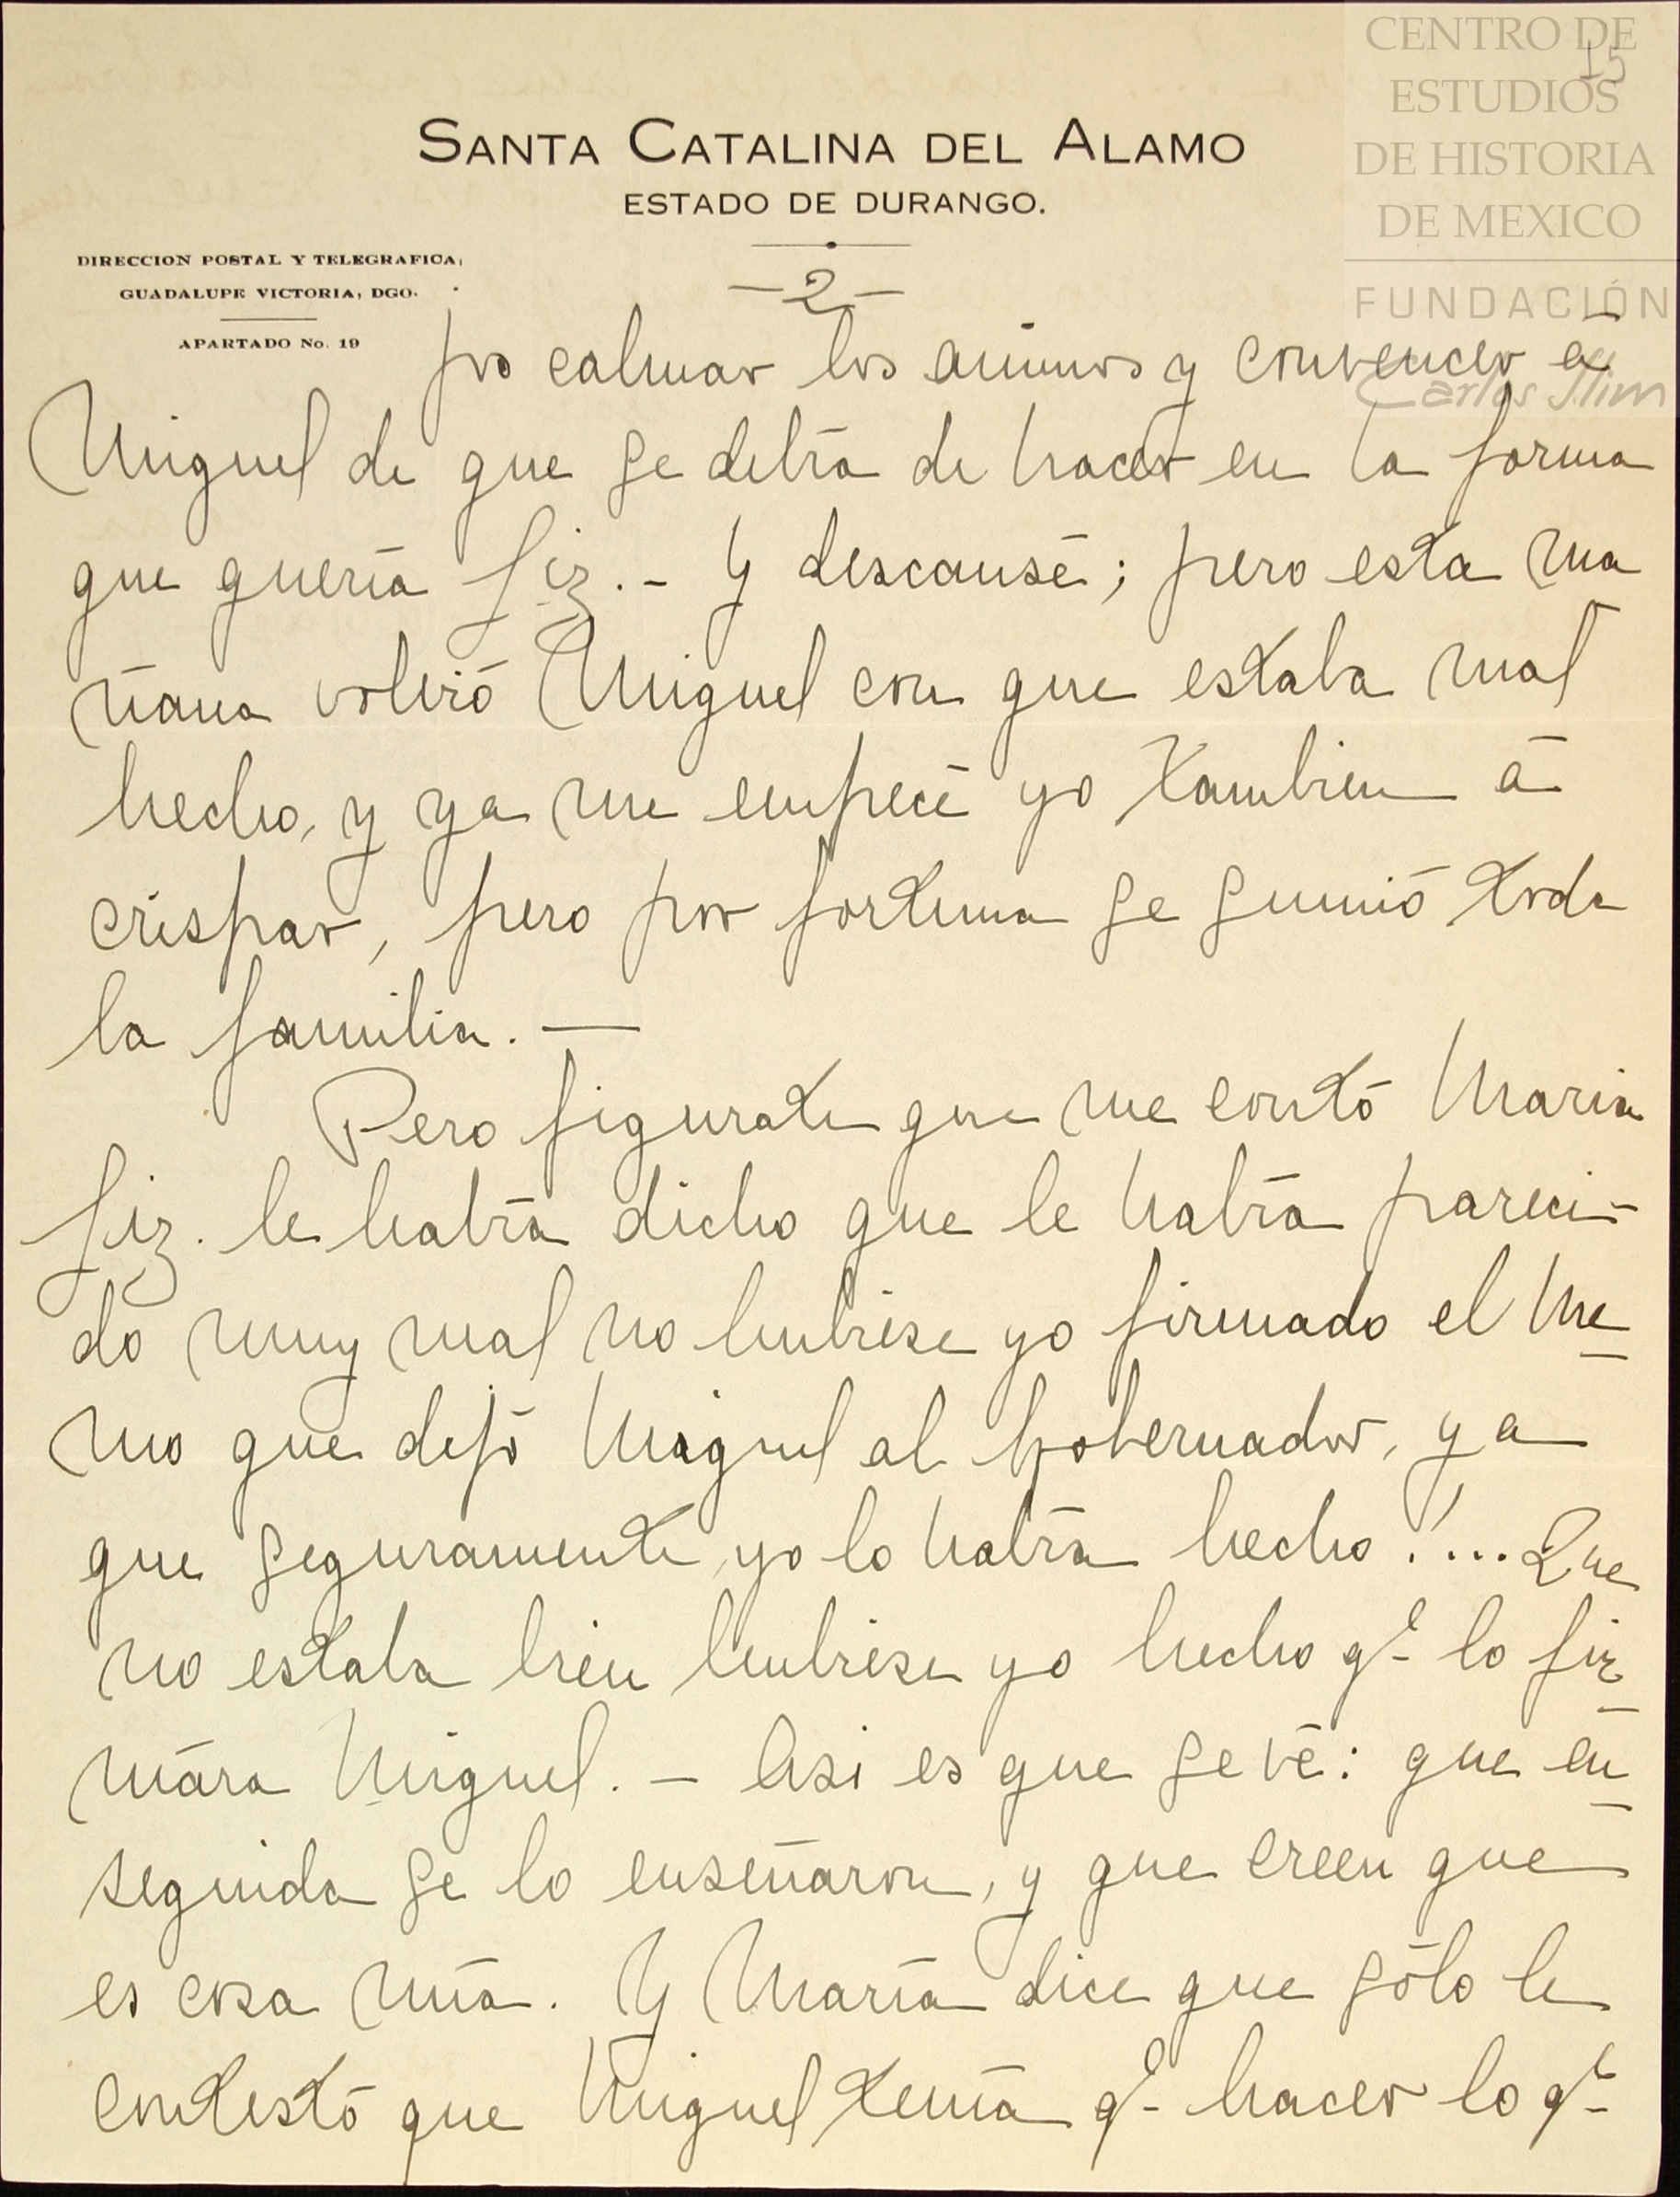 CENTRO DE
ESTUDIOS
DE HISTORIA
DE MEXICO
FUNDACIÓN
Carlos Slim
15
SANTA CATALINA DEL ALAMO
ESTADO DE DURANGO.
DIRECCION POSTAL Y TELEGRAFICA,
GUADALUPE VICTORIA, DGO.
APARTADO No. 19
—2—
pos calmar los animos y convencer á
Miguel de que se debía de hacer en la forma
que quería Liz.- Y descansé; pero esta ma
ñana volvió Miguel con que estaba mal
hecho, y ya me empecé yo tambien á
crispar, pero por fortuna se sumió toda
la familia. —
Pero figurate que me contó Maria
Liz. le había dicho que le había pareci-
do muy mal no hubiese yo firmado el Me
mo que dejó Miguel al Gobernador, ya
que seguramente yo lo había hecho!... Que
no estaba bien hubiese yo hecho qe lo fir
mára Miguel. - Asi es que se vé: que en
seguida se lo enseñaron, y que creen que
es cosa mía. Y María dice que sólo le
contestó que Miguel tenía qe hacer lo qe